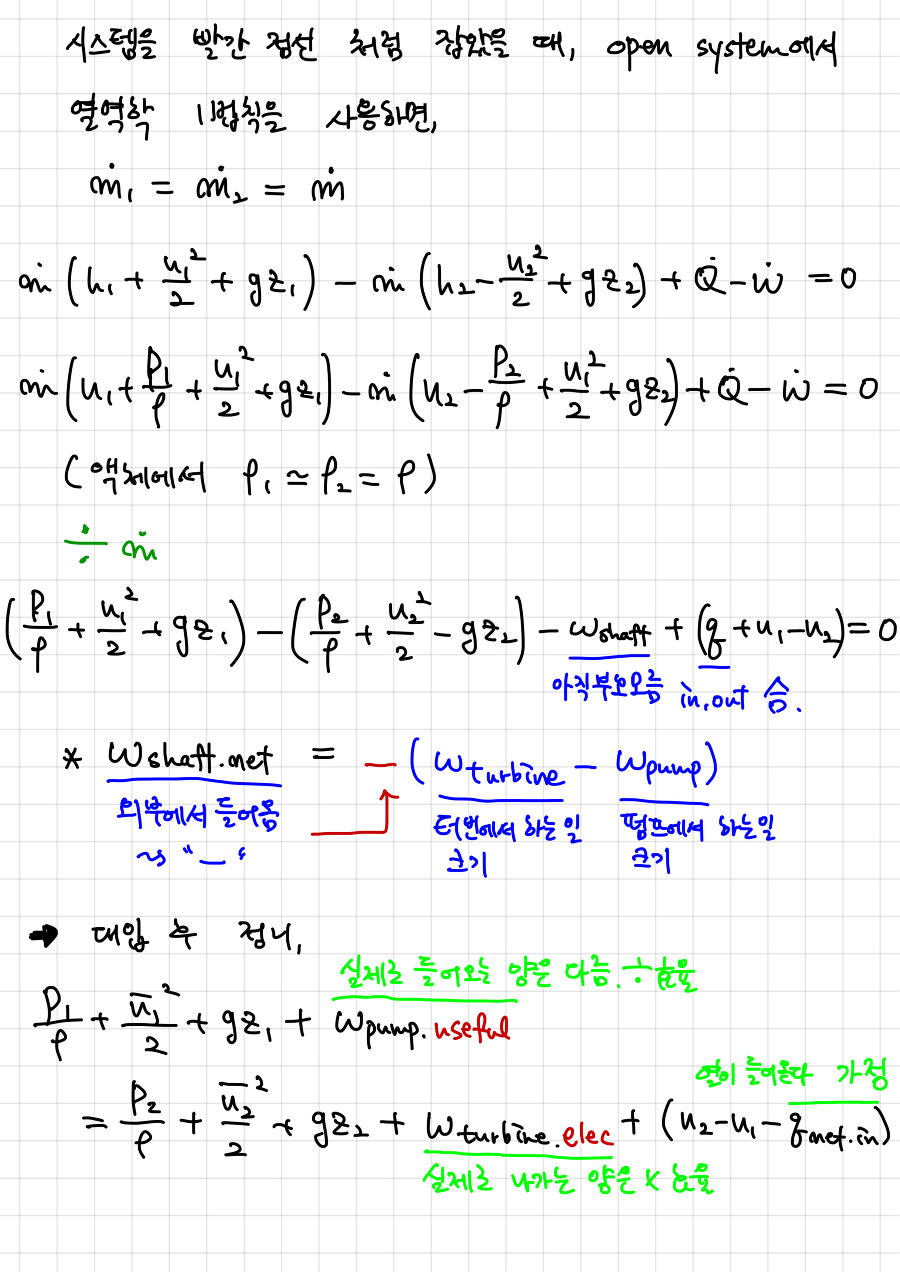 시스템을 빨간 점선 처럼 잡았을 때, open system에서
열역학 1법칙을 사용하면,
ṁ₁ = ṁ₂ = ṁ
ṁ (h₁ + u₁²/2 + gz₁) − ṁ (h₂ − u₂²/2 + gz₂) + Q̇ − ẇ = 0
ṁ (u₁ + P₁/ρ + u₁²/2 + gz₁) − ṁ (u₂ − P₂/ρ + u₁²/2 + gz₂) + Q̇ − ẇ = 0
(액체에서 ρ₁ ≃ ρ₂ = ρ)
÷ ṁ
(P₁/ρ + u₁²/2 + gz₁) − (P₂/ρ + u₂²/2 − gz₂) − ω shaft + (q + u₁ − u₂) = 0
아직부호모름 in, out 슴.
* ω shaft.net = − (ω turbine − ω pump)
외부에서 들어옴 터번에서 하는 일 펌프에서 하는 일
~s "−" 크기 크기
→ 대입 후 정리,
실제로 들어오는 양은 다름. ÷ 효율
P₁/ρ + ū₁²/2 + gz₁ + ω pump. useful
열이 들어온다 가정
= P₂/ρ + ū₂²/2 + gz₂ + ω turbine. elec + (u₂ − u₁ − q net.in)
실제로 나가는 양은 × 효율